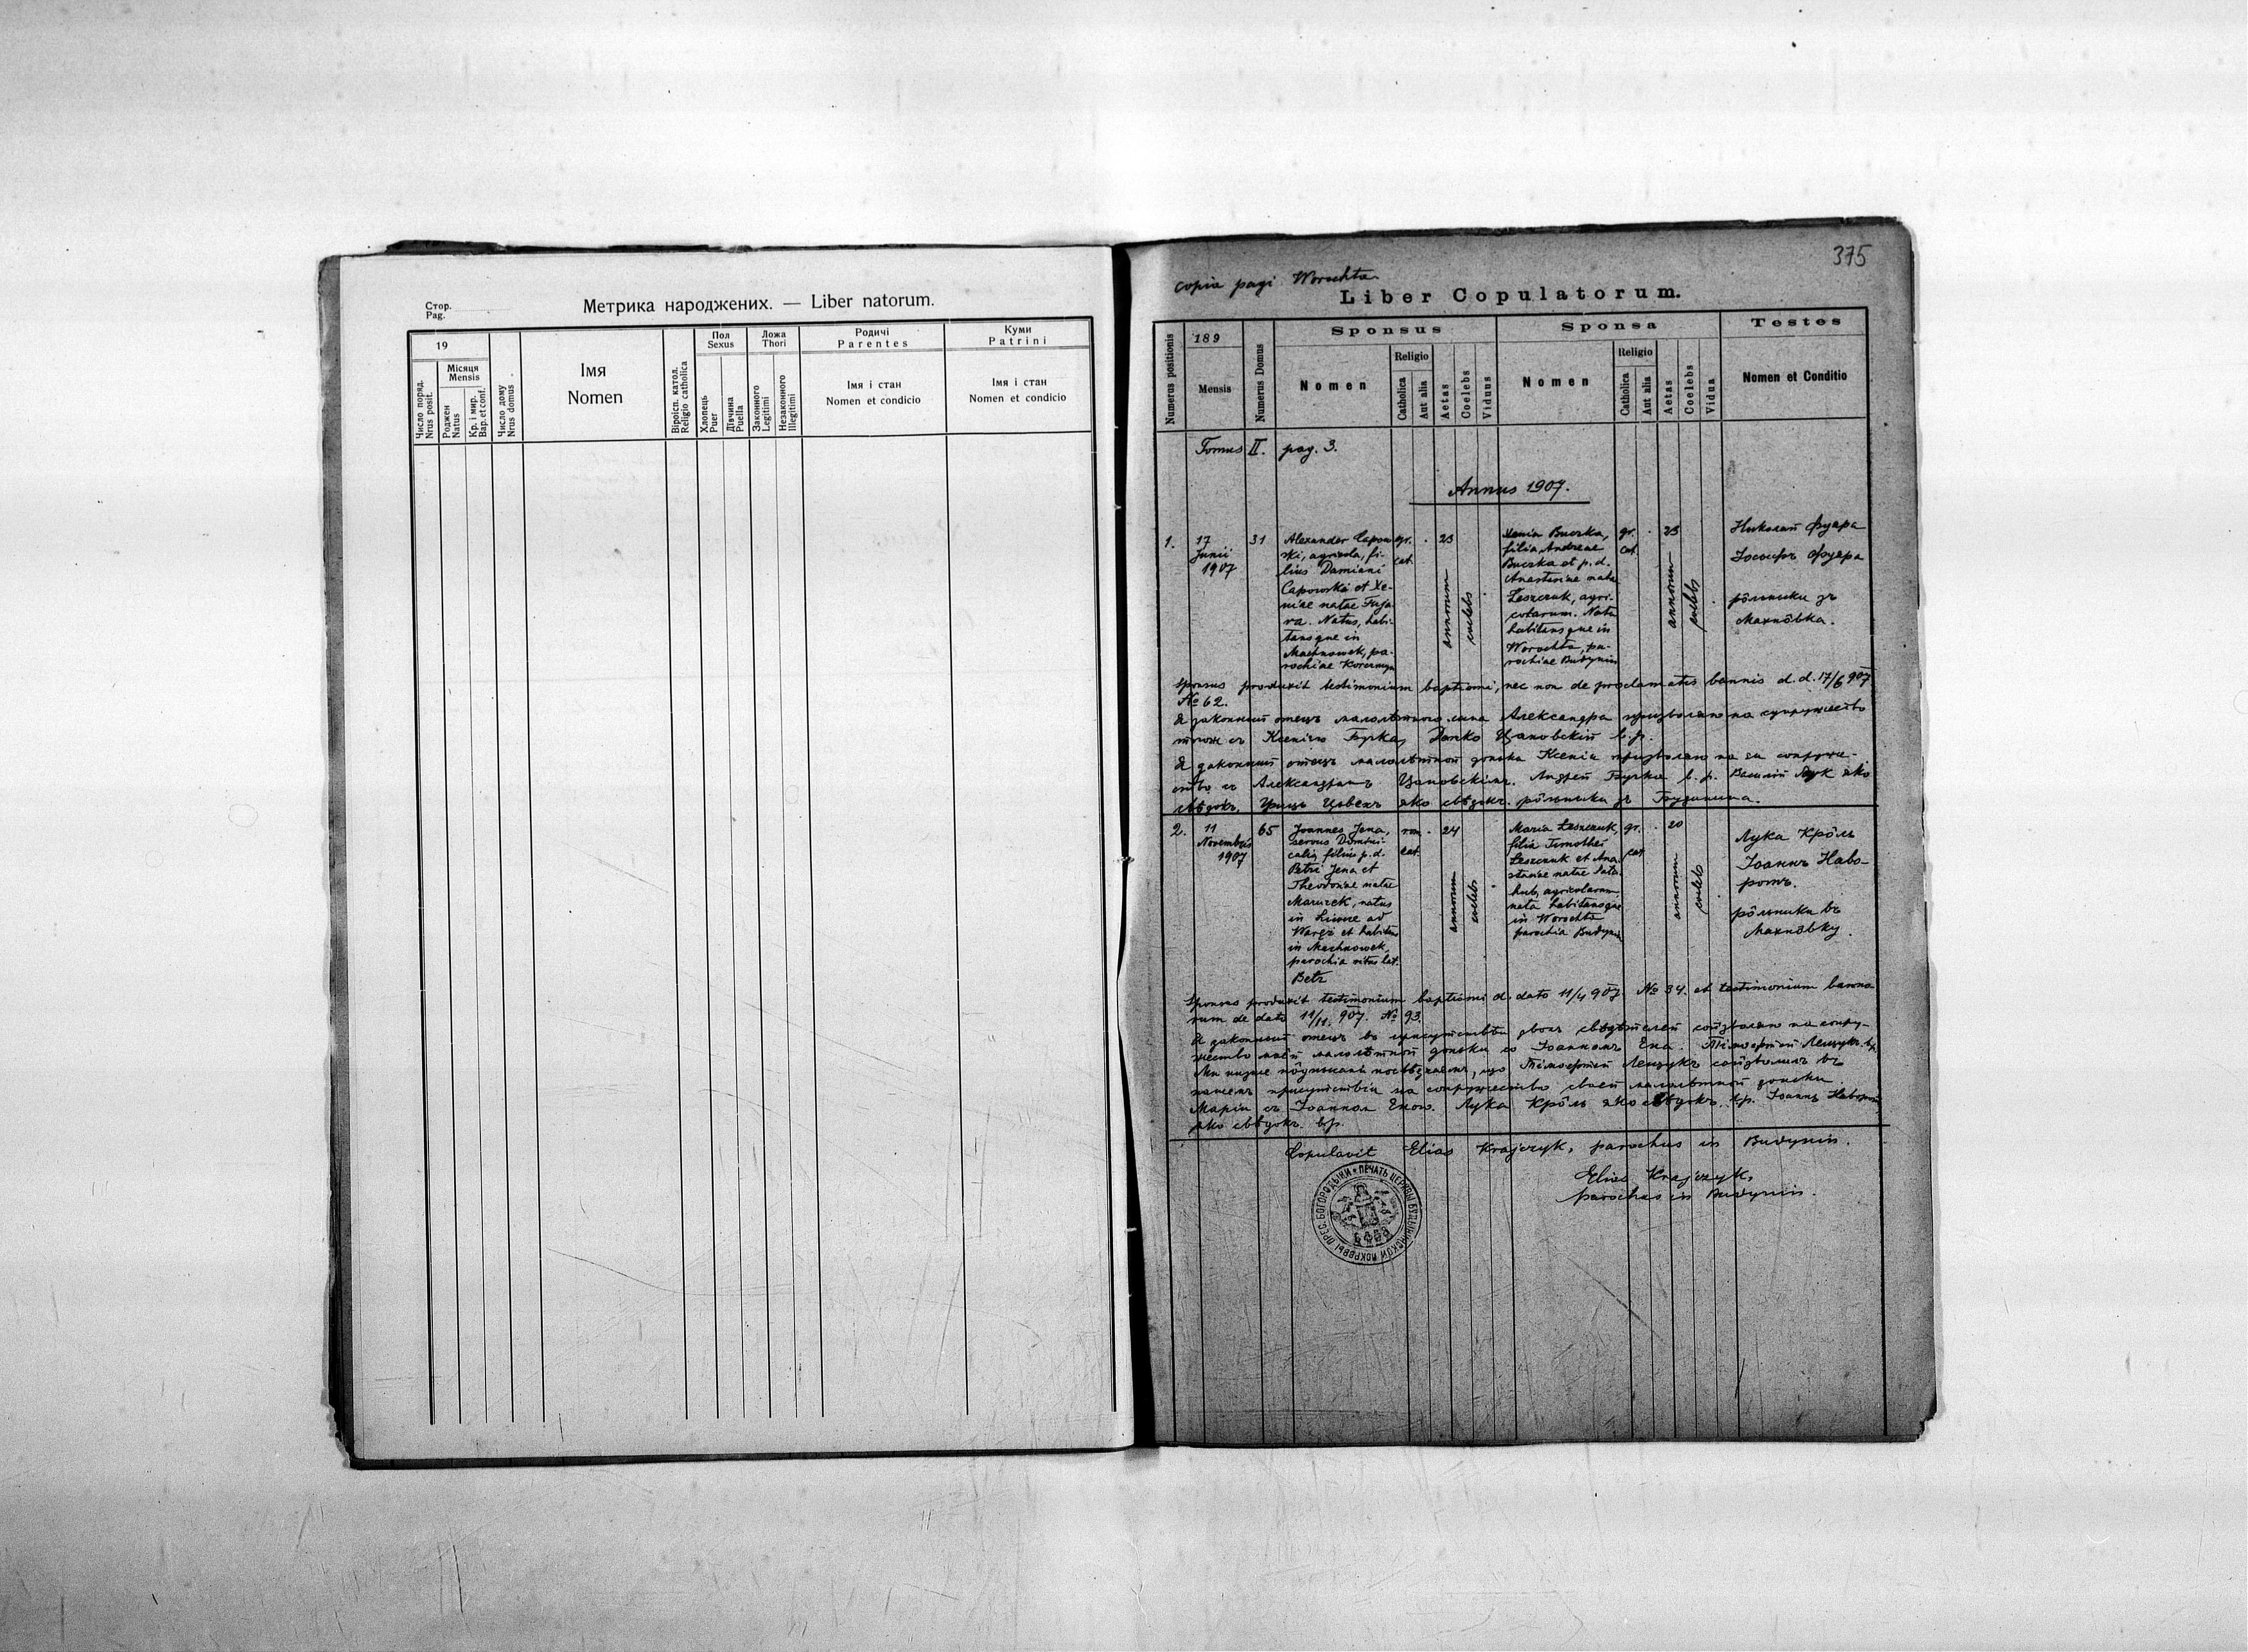 Стор.
Pag.
Метрика народжених. — Liber natorum.
19
Число поряд.
Nrus posit.
Місяця
Mensis
Роджен
Natus
Кр. і мир.
Bap. et conf.
Число дому
Nrus domus
Імя
Nomen
Віроісп. катол.
Religio catholica
Пол
Sexus
Хлопець
Puer
Дівчина
Puella
Ложа
Thori
Законного
Legitimi
Незаконного
Illegitimi
Родичі
Parentes
Імя і стан
Nomen et condicio
Куми
Patrini
Імя і стан
Nomen et condicio
375
copia pagi Worochta
Liber Copulatorum.
Numerus positionis
189
Mensis
Numerus Domus
Sponsus
Nomen
Religio
Catholica
Aut alia
Aetas
Coelebs
Viduus
Sponsa
Nomen
Religio
Catholica
Aut alia
Aetas
Coelebs
Vidua
Testes
Nomen et Conditio
Tomus II. pag. 3.
Annus 1907.
1.
17
Junii
1907
31
Alexander Capow
ski, agricola, fi-
lius Damiani
Capowski et Xe-
niae natae Fuja-
ra. Natus, habi-
tansque in
Machnowek, pa-
rochiae Korczmyn
gr.
cat.
23
annorum
coelebs
Xenia Buczka,
filia Andreae
Buczka et p. d.
Anastasiae nata
Leszczuk, agri-
colarum. Nata
habitansque in
Worochta, pa-
rochiae Budynin
gr.
cat.
23
annorum
coelebs
Николай Фуяра
Іосифъ Фуяра
рôльники зъ
Махнôвка.
Sponsus produxit testimonium baptismi, nec non de proclamatis bannis d. d. 17/6 907
№ 62.
Я законный отецъ малолѣтного сына Александра призволяю на супружество
тогож съ Ксенією Бучка, Дамко Цаповскій в. р.
Я законный отецъ малолѣтной доньки Ксенія призволяю на єи супруже-
ство съ Александромъ Цаповскімъ. Андрей Бучка в. р. Василій яко
свѣдокъ, Грицъ яко свѣдокъ. рôльники зъ Будинина.
2.
11
Novembris
1907
65
Joannes Jena,
servus Domini-
calis, filius p. d.
Petri Jena et
Theodoriae natae
Mazurek, natus
in Liwcze ad
Waręż et habitus
in Machnowek,
parochia ritus lat.
Bełz
rom.
cat.
24
annorum
coelebs
Maria Leszczuk,
filia Timothei
Leszczuk et Ana-
stasiae natae
agricolarum
nata habitansque
in Worochta
parochia Budynin
gr.
cat
20
annorum
coelebs
Лука Крôль
Іоаннъ Наво-
ротъ.
рôльники въ
Махнôвку.
Sponsus produxit testimonium baptismi d. dato 11/4 907 № 34. et testimonium banno
rum de dato 11/11. 907. № 93.
Я законный отецъ въ присутствіи двохъ свѣдѣтелей созволяю на супру-
жество моєй малолѣтной доньки со Іоанномъ Єна. Тімофтей Лещукъ. в.р.
Мы низше пôдписаній посвѣдчаемъ, що Тімофтей Лещукъ созволилъ въ
нашемъ присутствіи на сопружество своей малолѣтной доньки
Маріи съ Іоанном Єною. Лука Крôль яко свѣдокъ. в.р. Іоаннъ Наворотъ
яко свѣдокъ. в.р.
Copulavit Elias Krajczyk, parochus in Budynin.
Elias Krajczyk,
parochus in Budynin.
ПЕЧАТЬ ЦЕРКВЫ БУДЫНИНСКОЙ ПОКРОВЫ ПРЕС. БОГОРОДЫЦИ